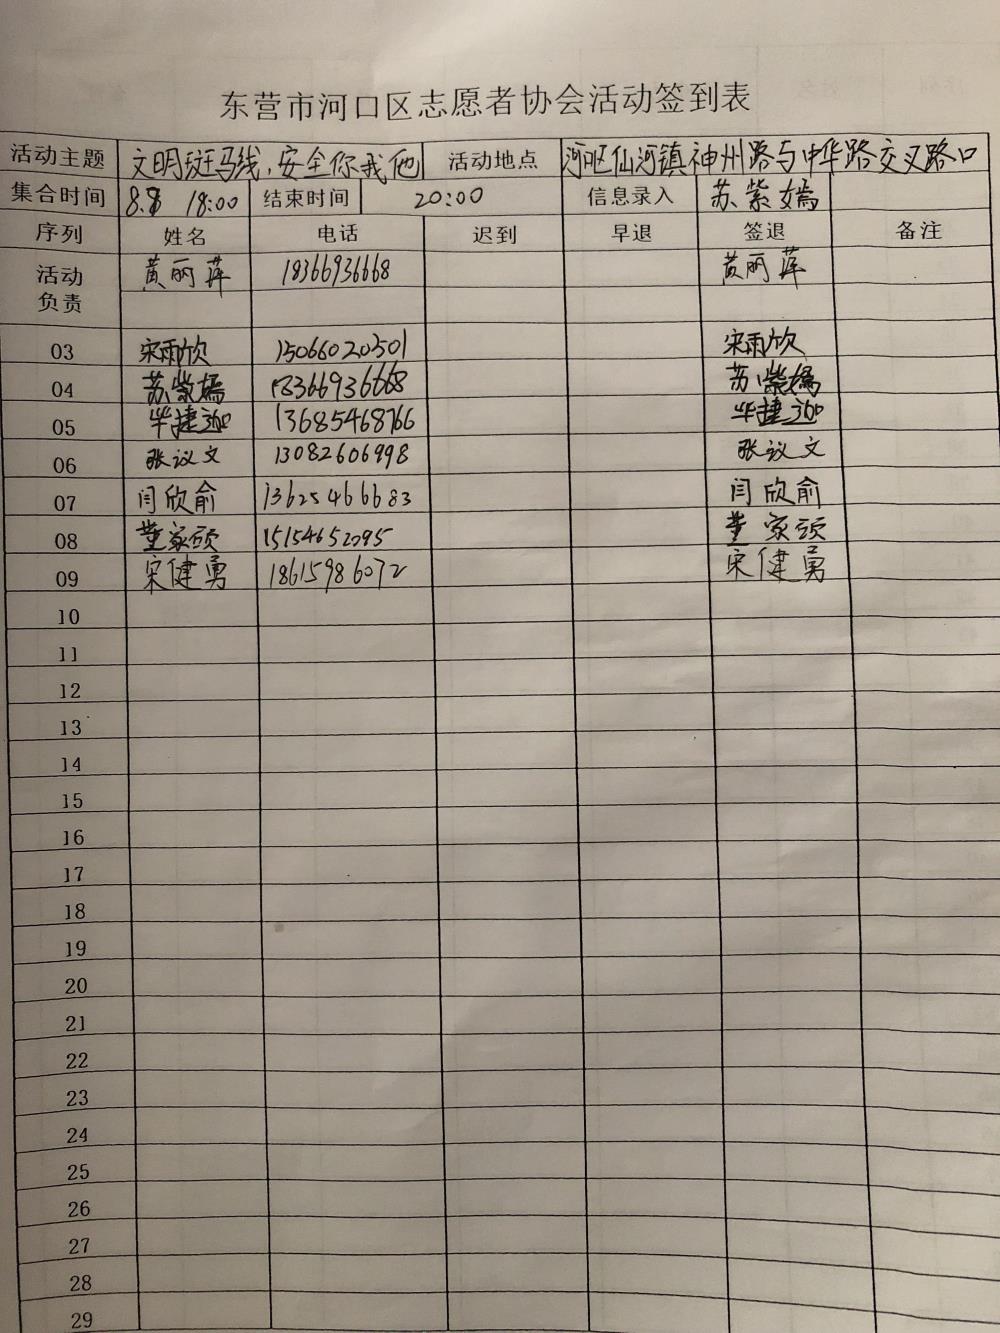 东营市河口区志愿者协会活动签到表
活动主题 文明斑马线,安全你我他 活动地点 河口区仙河镇神州路与中华路交叉路口
集合时间 8.8 18:00 结束时间 20:00 信息录入 苏紫嫣
序列 姓名 电话 迟到 早退 签退 备注
活动负责 黄丽萍 18366936668 黄丽萍
03 宋雨欣 15066020501 宋雨欣
04 苏紫嫣 18366936668 苏紫嫣
05 华捷迦 13685468766 华捷迦
06 张议文 13082606998 张议文
07 闫欣俞 13625466683 闫欣俞
08 董家硕 15154652295 董家硕
09 宋健勇 18615986072 宋健勇
10
11
12
13
14
15
16
17
18
19
20
21
22
23
24
25
26
27
28
29